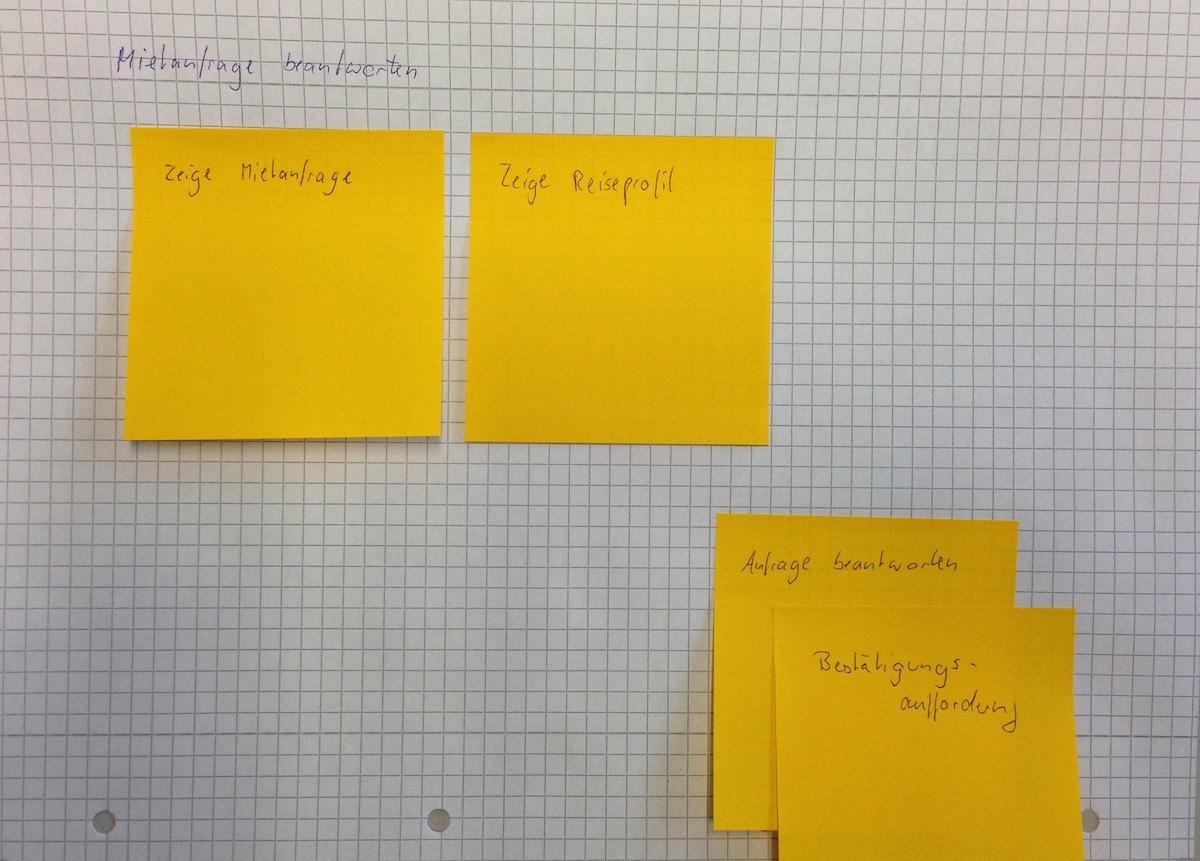 Mietanfrage beantworten
Zeige Mietanfrage
Zeige Reiseprofil
Anfrage beantworten
Bestätigungs-
auffordung